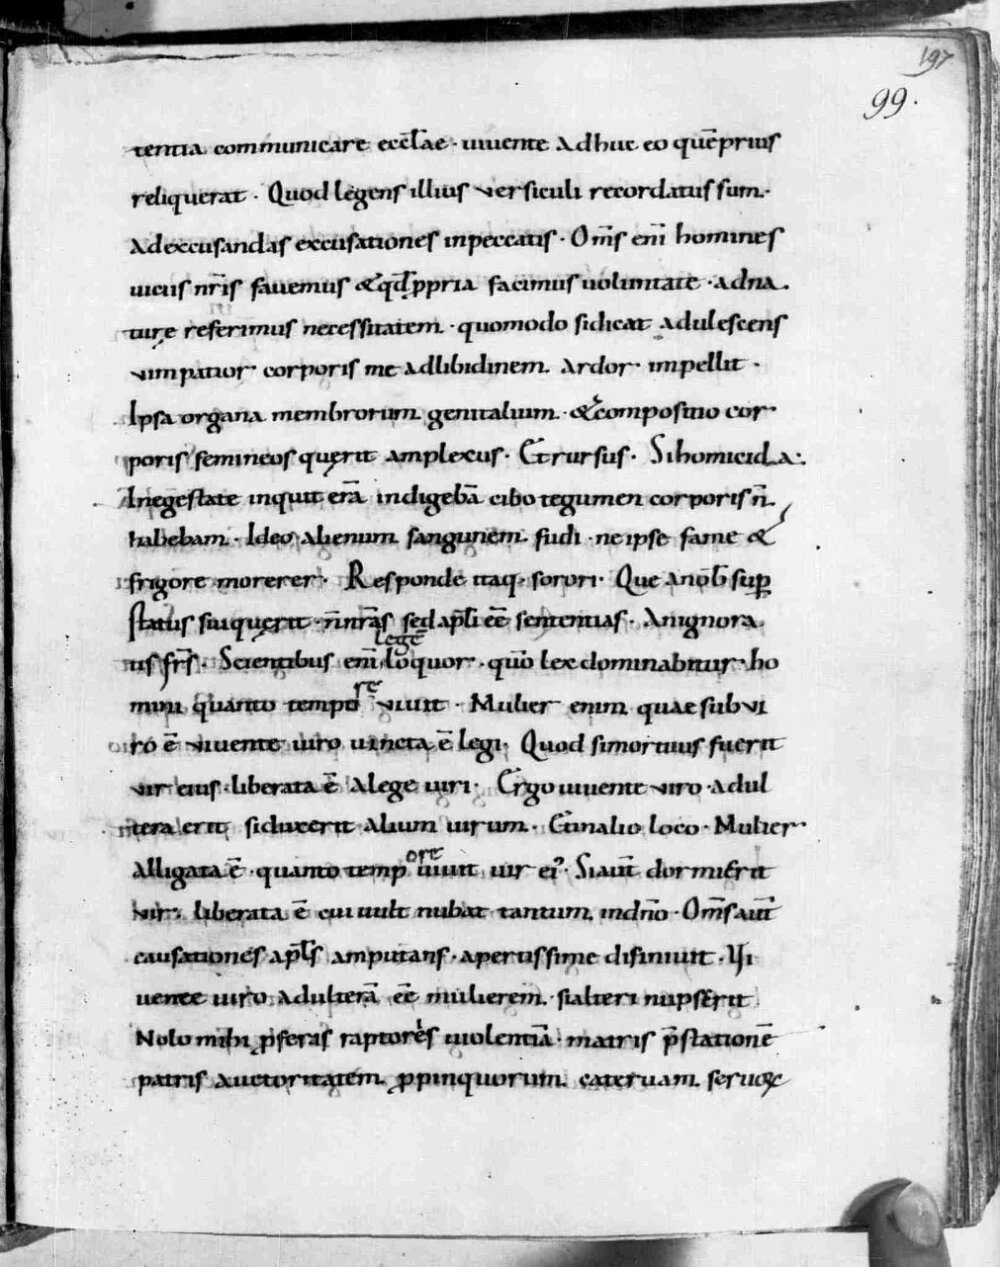 197
99.
tentia communicare eccl̄ae · uiuente adhuc eo quē prius
reliquerat · Quod legens illius versiculi recordatus sum ·
Ad excusandas excusationes in peccatis · Om̄s enī homines
uiciis nr̄is fauemus & qd̄ ꝓpria facimus uoluntate · ad na
turę referimus necessitatem · quomodo si dicat adulescens
vim patior corporis me ad libidinem ardor impellit ·
Ipsa organa membrorum genitalium · & compositio cor
poris femineos quęrit amplexus · Et rursus · Si homicida ·
In egestate inquit erā indigebā cibo tegumen corporis n̄
habebam · Ideo alienum sanguinem fudi · ne ipse fame &
frigore morerer · Responde itaq· sorori · Que a nob̄ sup̄
status sui quęrit · n̄ nr̄as sed apl̄i eē sententias · An ignora
tis fr̄s · Scientibus enī legē loquor · quō lex dominabitur ho
mini quanto tempore viuit · Mulier enim quae sub vi
ro ē vivente uiro uincta ē legi · Quod si mortuus fuerit
vir eius · liberata ē a lege uiri · Ergo uiuente viro · adul
tera erit si duxerit alium uirum · Et in alio loco · Mulier
alligata ē · quanto tempore uiuit uir ei' · Si aut̄ dormierit
vir · liberata ē cui uult nubat tantum in dn̄o · Om̄s aut̄
causationes apl̄s amputans · apertissime difiniuit · Ui
uente uiro adulterā eē mulierem · si alteri nupserit
Nolo mihi p̄feras raptores uiolentiā · matris p̄stationē
patris auctoritatem ꝓpinquorum cateruam seruoꝝ